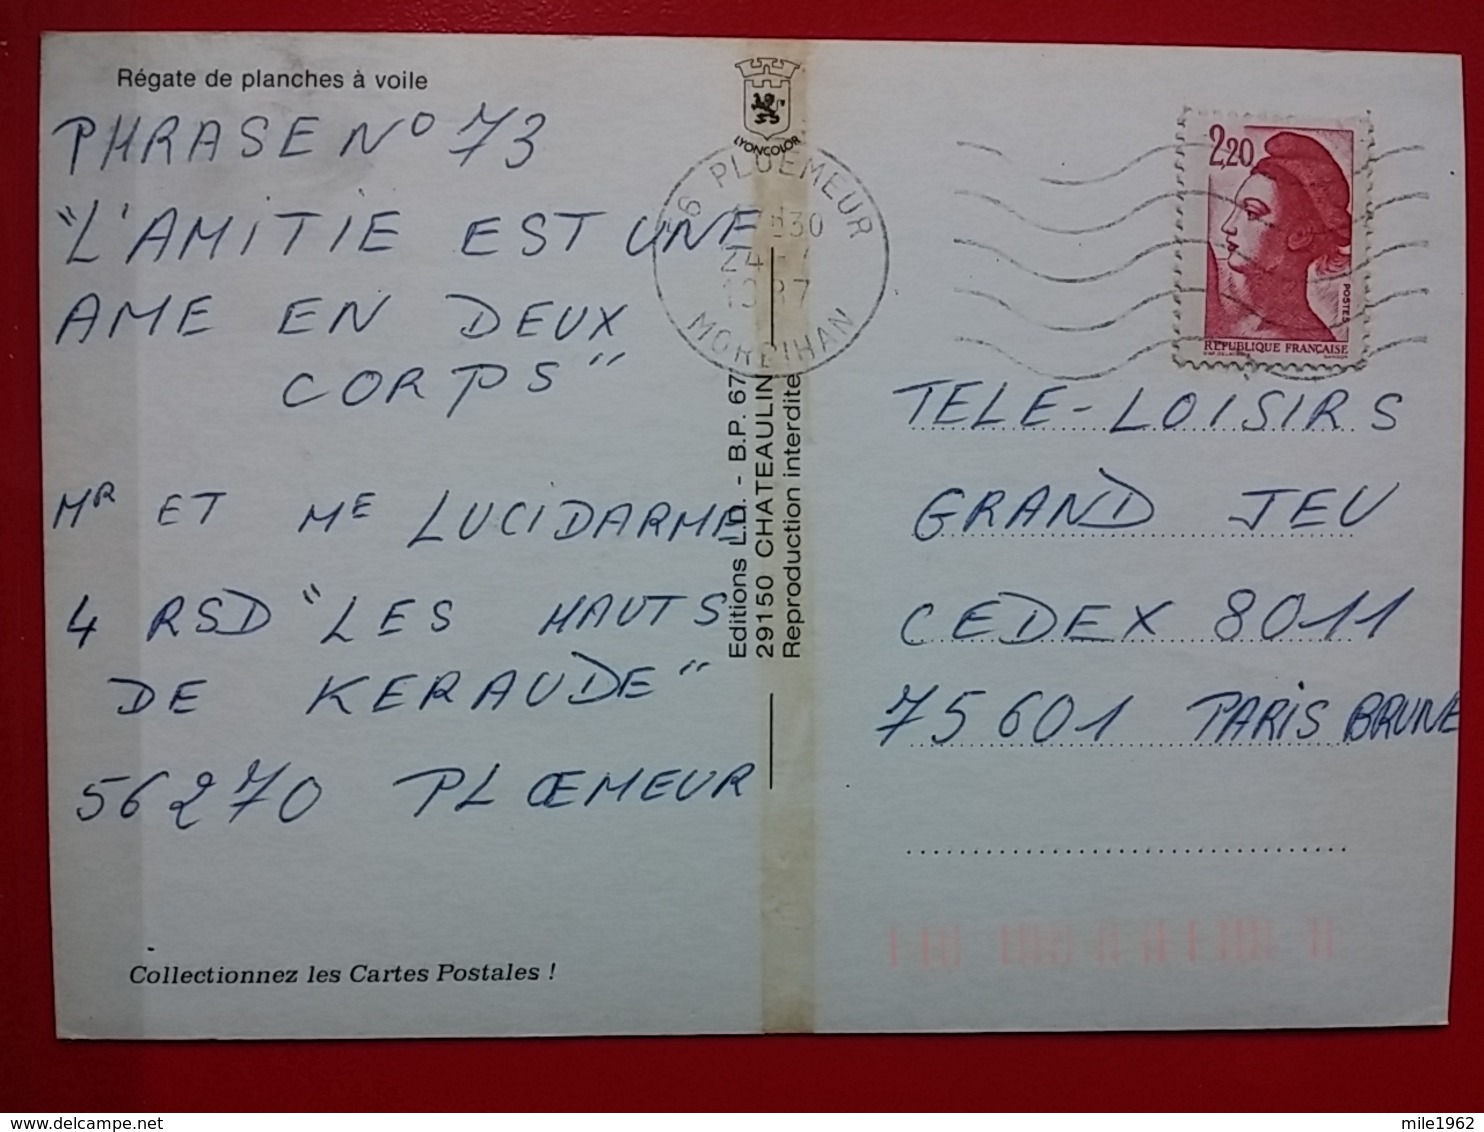 Régate de planches à voile
PHRASE N° 73
"L'AMITIE EST UNE
AME EN DEUX
CORPS"
MR ET ME LUCIDARME
4 RSD "LES HAUTS
DE KERAUDE"
56270 PLŒMEUR
Collectionnez les Cartes Postales !
LYONCOLOR
Editions L.D. - B.P. 67
29150 CHATEAULIN
Reproduction interdite
PLOEMEUR
1987
MORBIHAN
2,20
POSTES
REPUBLIQUE FRANÇAISE
TELE-LOISIRS
GRAND JEU
CEDEX 8011
75601 PARIS BRUNE
delcampe.net
mile1962